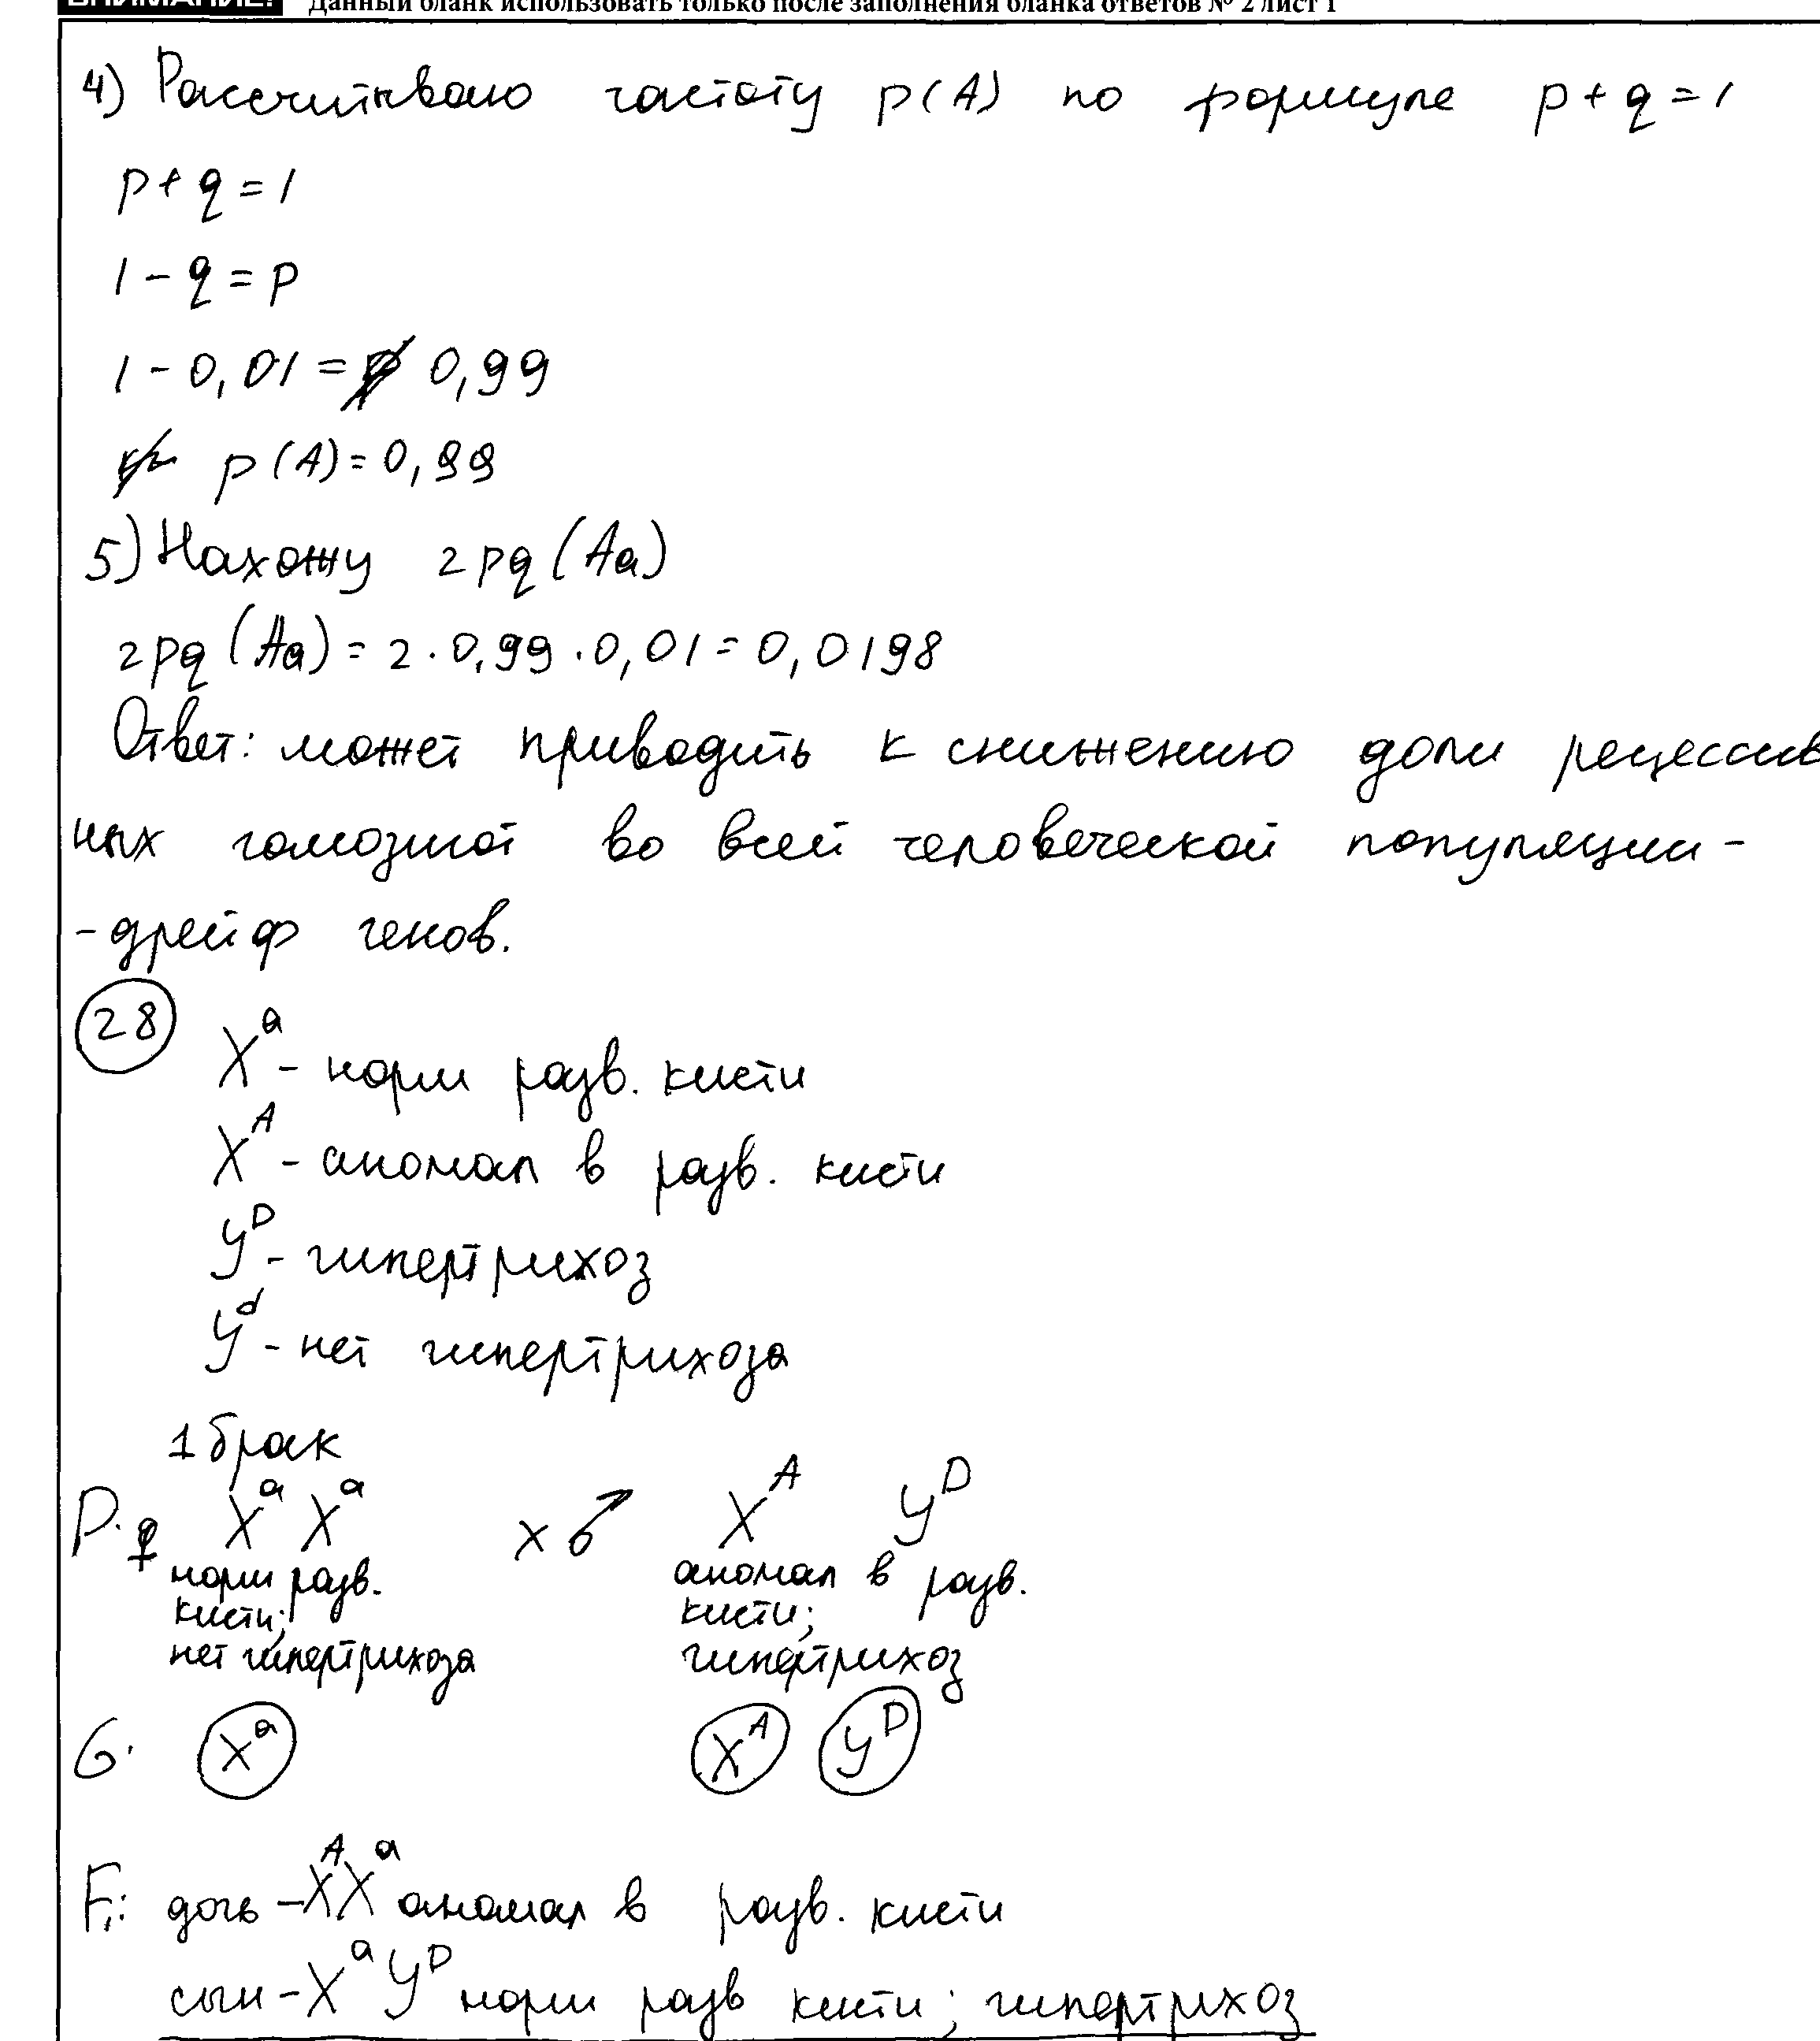 ВНИМАНИЕ! Данный бланк использовать только после заполнения бланка ответов № 2 лист 1
4) Рассчитываю частоту p(A) по формуле p+q=1
p+q=1
1-q=p
1-0,01= 0,99
p(A)=0,99
5) Нахожу 2pq(Aa)
2pq(Aa)=2·0,99·0,01=0,0198
Ответ: может приводить к снижению доли рецессив
ных гомозигот во всей человеческой популяции -
- дрейф генов.
28
Xᵃ - норм разв. кисти
Xᴬ - аномал в разв. кисти
Yᴰ - гипертрихоз
Yᵈ - нет гипертрихоза
1 брак
P. ♀ Xᵃ Xᵃ x ♂ Xᴬ Yᴰ
норм разв. аномал в разв.
кисти; кисти;
нет гипертрихоза гипертрихоз
G. Xᵃ Xᴬ Yᴰ
F₁: дочь - XᴬXᵃ аномал в разв. кисти
сын - XᵃYᴰ норм разв кисти; гипертрихоз